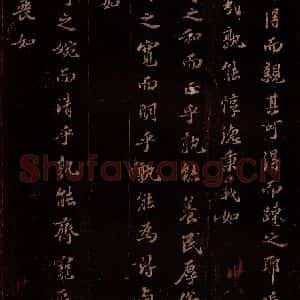 得而親其可得而踈之耶
哉孰能惇德秉如
之和而正乎孰能養民厚俗
之寬而明乎孰能為詩
如
之婉而清乎孰能齊寵
喪如
Shufawang.CN